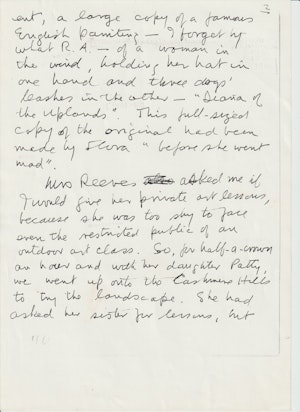 ent, a large copy of a famous
English painting — I forget by
what R.A. — of a woman in
the wind, holding her hat in
one hand and three dogs'
leashes in the other — "Diana of
the Uplands". This full-sized
copy of the original had been
made by Flora "before she went
mad".
Mrs Reeves asked me if
I would give her private art lessons,
because she was too shy to face
even the restricted public of an
outdoor art class. So, for half-a-crown
an hour and with her daughter Patty,
we went up onto the Cashmere Hills
to try the landscape. She had
asked her sister for lessons, but